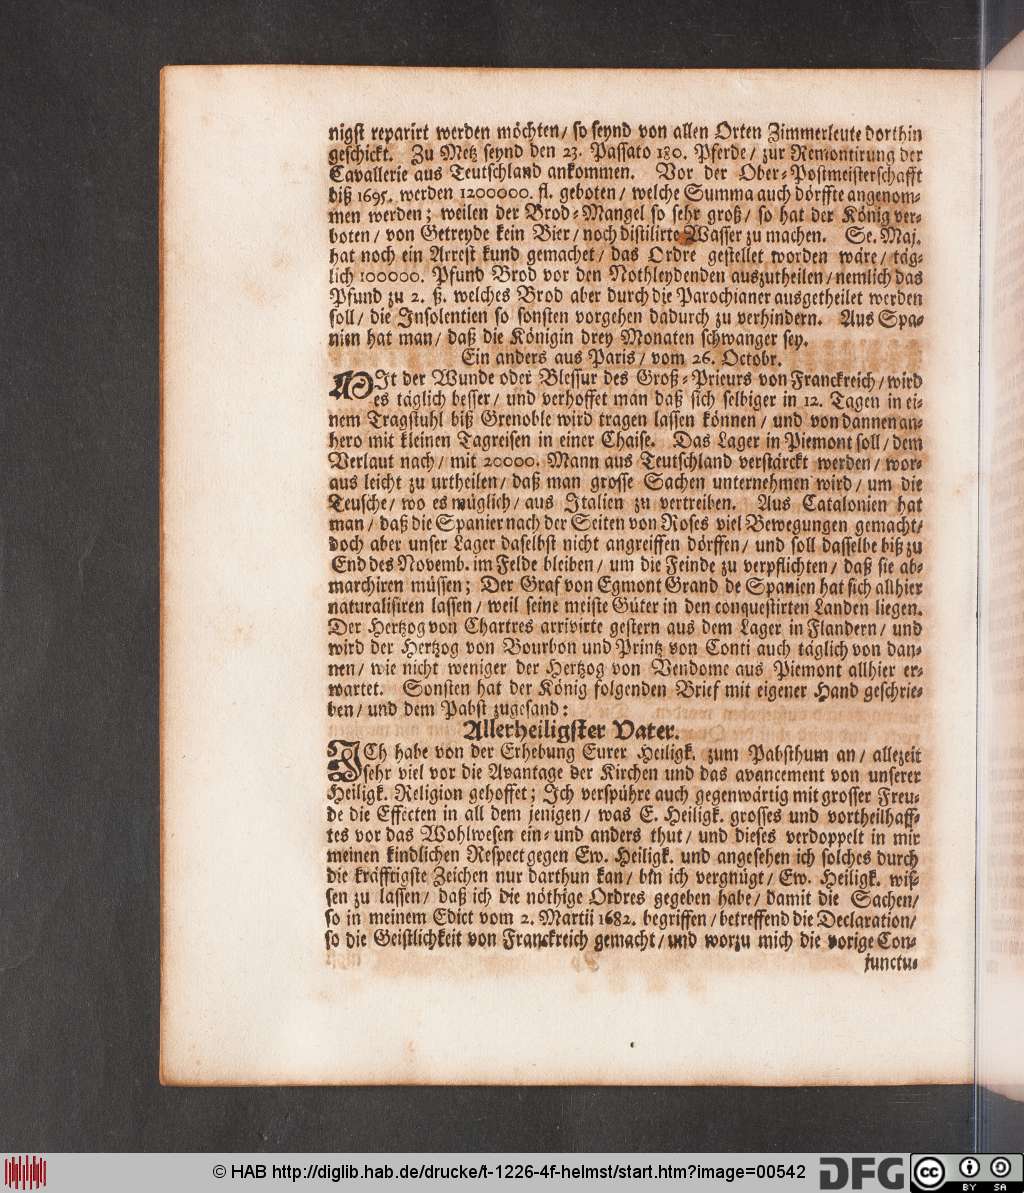 nigst reparirt werden möchten/ so seynd von allen Orten Zimmerleute dorthin
geschickt. Zu Metz seynd den 23. Passato 180. Pferde/ zur Remontirung der
Cavallerie aus Teutschland ankommen. Vor der Ober-Postmeisterschafft
biß 1695. werden 1200000. fl. geboten/ welche Summa auch dörffte angenom-
men werden; weilen der Brod-Mangel so sehr groß/ so hat der König ver-
boten/ von Getreyde kein Bier/ noch distilirte Wasser zu machen. Se. Maj.
hat noch ein Arrest kund gemachet/ das Ordre gestellet worden wäre/ täg-
lich 100000. Pfund Brod vor den Nothleydenden auszutheilen/ nemlich das
Pfund zu 2. ß. welches Brod aber durch die Parochianer ausgetheilet werden
soll/ die Insolentien so sonsten vorgehen dadurch zu verhindern. Aus Spa-
nien hat man/ daß die Königin drey Monaten schwanger sey.
Ein anders aus Paris/ vom 26. Octobr.
MIt der Wunde oder Blessur des Groß-Prieurs von Franckreich/ wird
es täglich besser/ und verhoffet man daß sich selbiger in 12. Tagen in ei-
nem Tragstuhl biß Grenoble wird tragen lassen können/ und von dannen an-
hero mit kleinen Tagreisen in einer Chaise. Das Lager in Piemont soll/ dem
Verlaut nach/ mit 20000. Mann aus Teutschland verstärckt werden/ wor-
aus leicht zu urtheilen/ daß man grosse Sachen unternehmen wird/ um die
Teusche/ wo es müglich/ aus Italien zu vertreiben. Aus Catalonien hat
man/ daß die Spanier nach der Seiten von Roses viel Bewegungen gemacht/
doch aber unser Lager daselbst nicht angreiffen dörffen/ und soll dasselbe biß zu
End des Novemb. im Felde bleiben/ um die Feinde zu verpflichten/ daß sie ab-
marchiren müssen; Der Graf von Egmont Grand de Spanien hat sich allhier
naturalisiren lassen/ weil seine meiste Güter in den conquestirten Landen liegen.
Der Hertzog von Chartres arrivirte gestern aus dem Lager in Flandern/ und
wird der Hertzog von Bourbon und Printz von Conti auch täglich von dan-
nen/ wie nicht weniger der Hertzog von Vendome aus Piemont allhier er-
wartet. Sonsten hat der König folgenden Brief mit eigener Hand geschrie-
ben/ und dem Pabst zugesand:
Allerheiligster Vater.
ICh habe von der Erhebung Eurer Heiligk. zum Pabsthum an/ allezeit
sehr viel vor die Avantage der Kirchen und das avancement von unserer
Heiligk. Religion gehoffet; Ich verspühre auch gegenwärtig mit grosser Freu-
de die Effecten in all dem jenigen/ was E. Heiligk. grosses und vortheilhaff-
tes vor das Wohlwesen ein- und anders thut/ und dieses verdoppelt in mir
meinen kindlichen Respect gegen Ew. Heiligk. und angesehen ich solches durch
die kräfftigste Zeichen nur darthun kan/ bin ich vergnügt/ Ew. Heiligk. wis-
sen zu lassen/ daß ich die nöthige Ordres gegeben habe/ damit die Sachen/
so in meinem Edict vom 2. Martii 1682. begriffen/ betreffend die Declaration/
so die Geistlichkeit von Franckreich gemacht/ und worzu mich die vorige Con-
junctu-
© HAB http://diglib.hab.de/drucke/t-1226-4f-helmst/start.htm?image=00542
DFG
cc BY SA